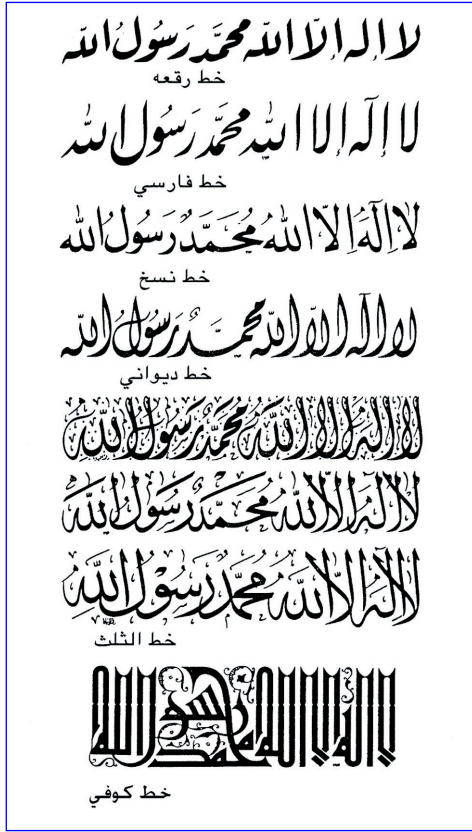 لا إله إلا الله محمد رسول الله
خط رقعه
لا إله إلا الله محمد رسول الله
خط فارسي
لا إله إلا الله محمد رسول الله
خط نسخ
لا إله إلا الله محمد رسول الله
خط ديواني
لا إله إلا الله محمد رسول الله
لا إله إلا الله محمد رسول الله
لا إله إلا الله محمد رسول الله
خط الثلث
لا إله إلا الله محمد رسول الله
خط كوفي